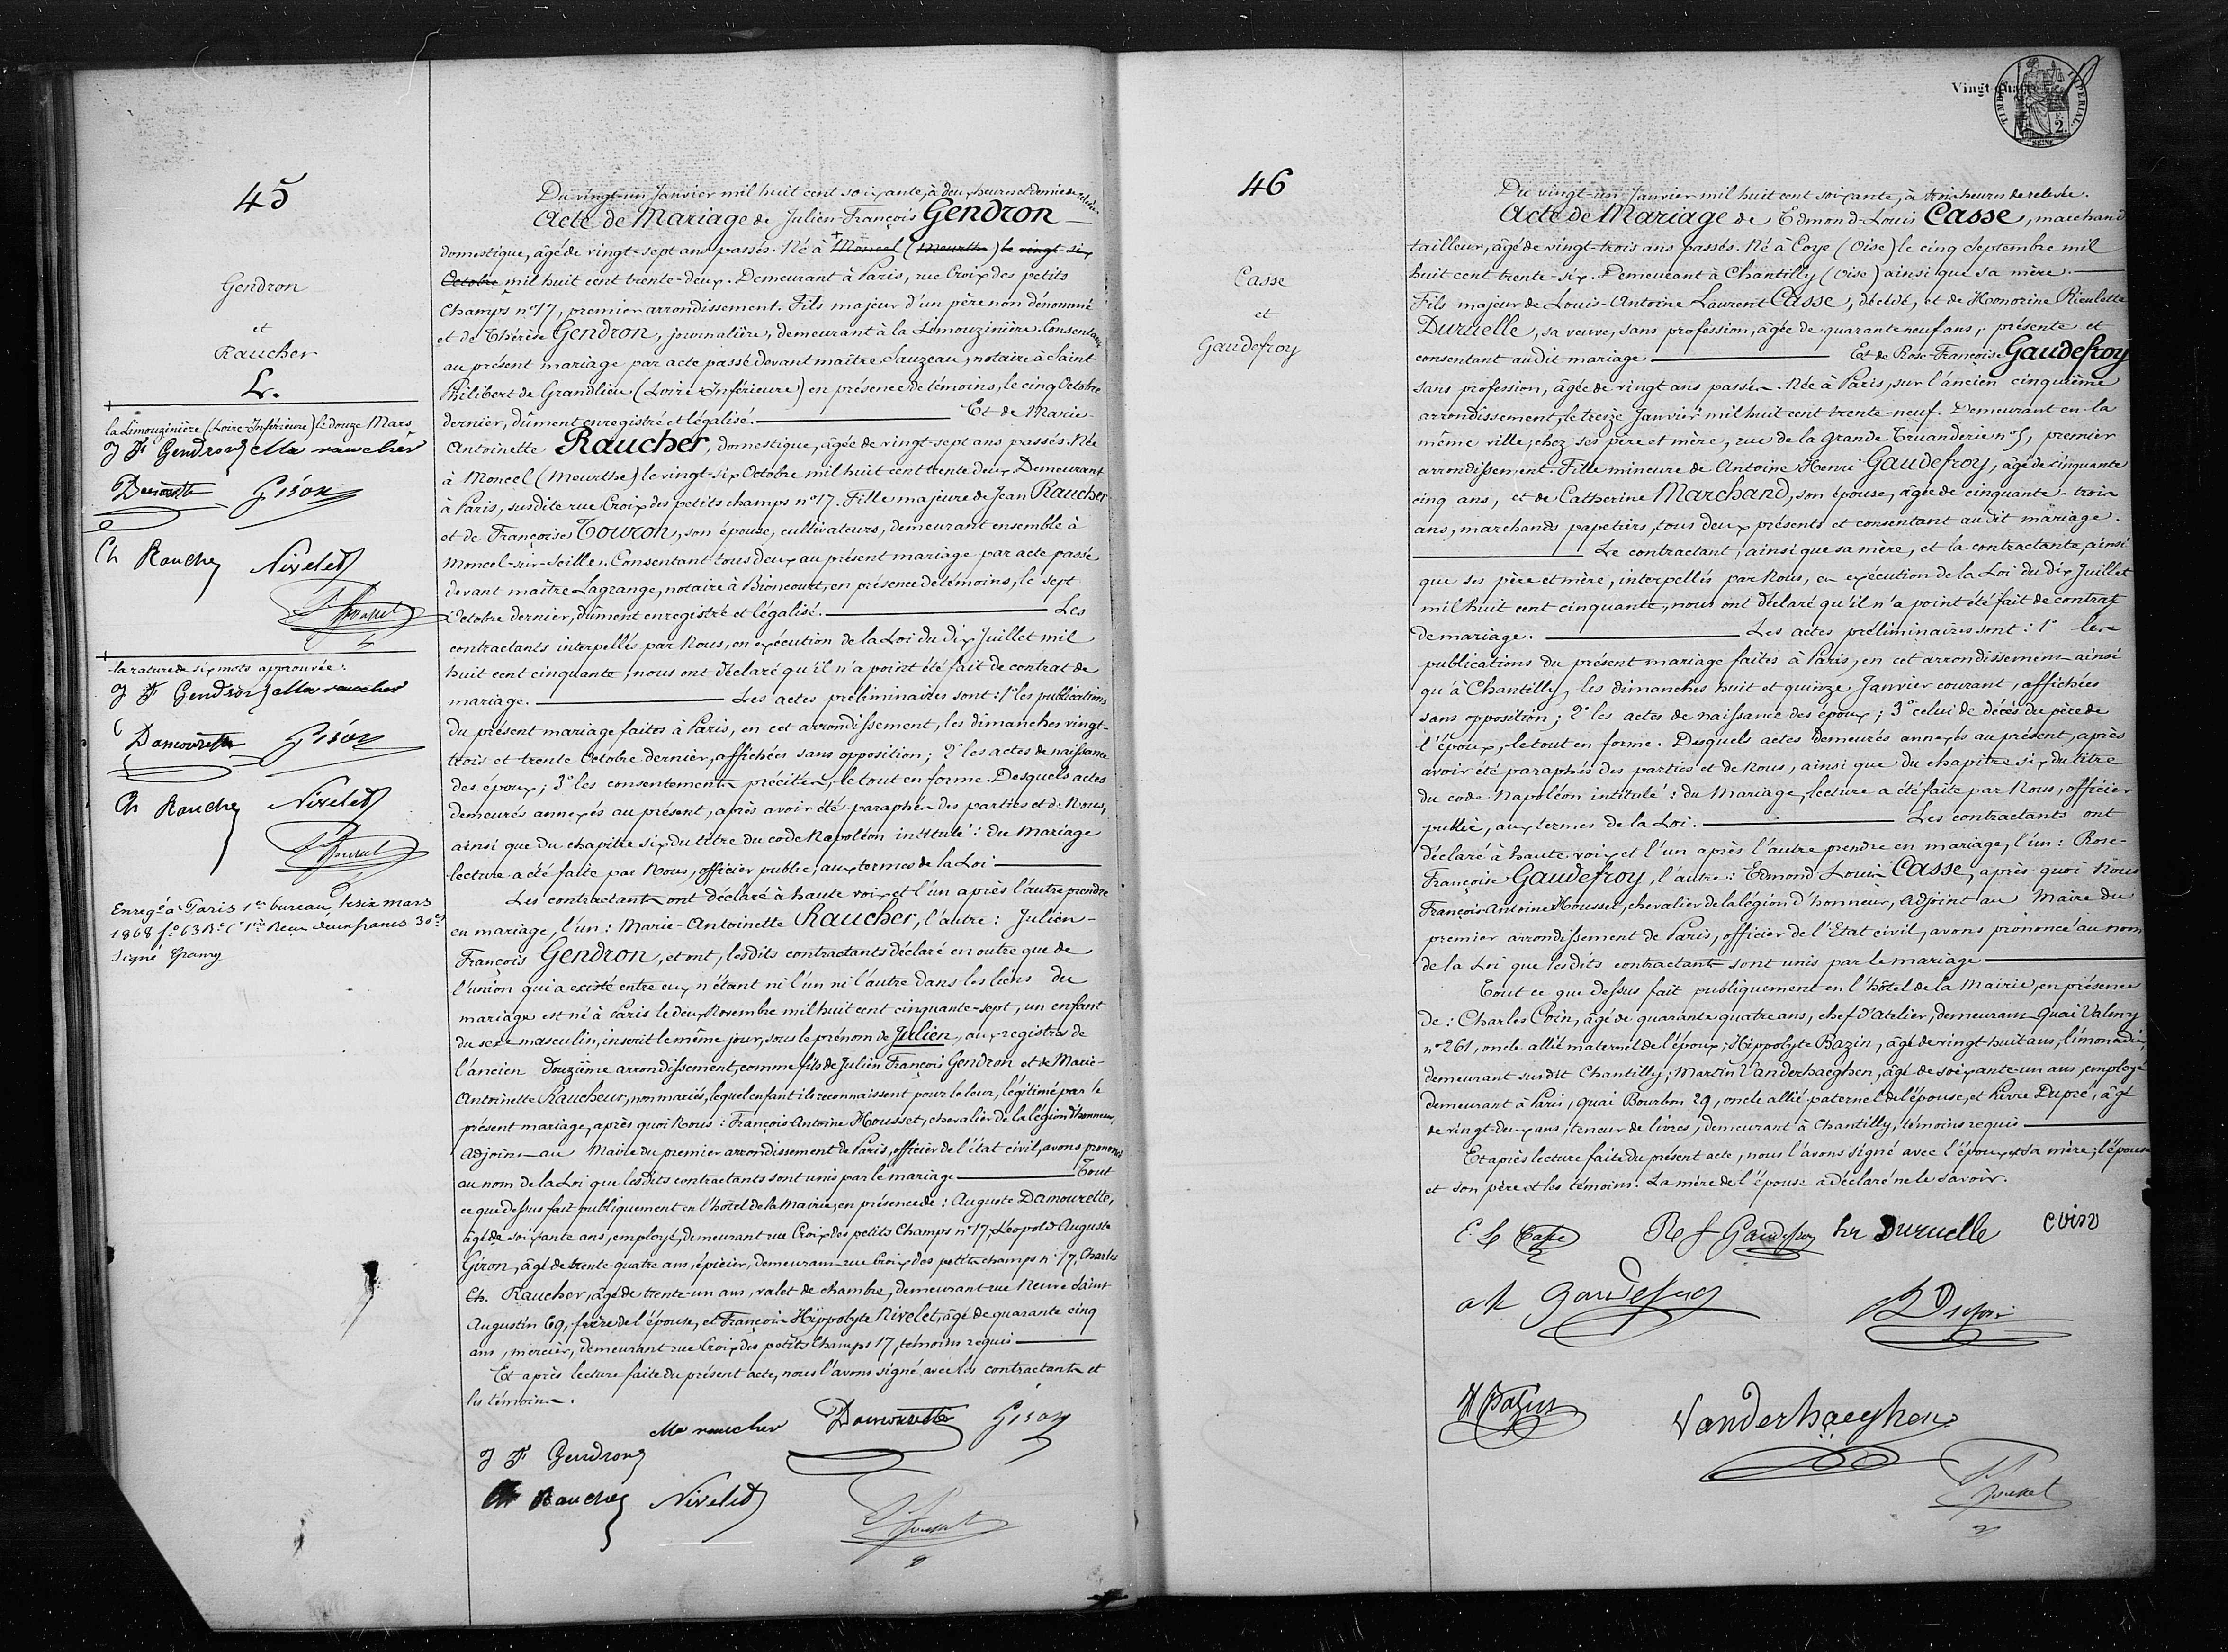 45
Gendron
et
Raucher
L.
la Limouzinière (Loire-Inférieure) le douze Mars
J F Gendron Ma raucher
Damourette Giron
Ch Raucher Nivelet
F Housset
la rature de six mots approuvée :
J F Gendron Ma raucher
Damourette Giron
Ch Raucher Nivelet
F Housset
Enregé à Paris 1er bureau, le six mars
1868 fo 63 Ro C 1re Reçu deux francs 30ces
Signé
Du vingt-un Janvier mil huit cent soixante, à deux heures et demie de relevée
Acte de Mariage de Julien-François Gendron
domestique, âgé de vingt-sept ans passés. Né à + Moncel (Meurthe) le vingt-six
Octobre mil huit cent trente-deux. Demeurant à Paris, rue Croix des petits
Champs n° 17, premier arrondissement. Fils majeur d'un père non dénommé
et de Thérèse Gendron, journalière, demeurant à la Limouzinière. Consentant
au présent mariage par acte passé devant maître Sauzeau, notaire à Saint
Philibert de Grandlieu (Loire-Inférieure) en présence de témoins, le cinq Octobre
dernier, dûment enregistré et légalisé. — Et de Marie-
Antoinette Raucher, domestique, âgée de vingt-sept ans passés. Née
à Moncel (Meurthe) le vingt-six Octobre mil huit cent trente deux Demeurant
à Paris, susdite rue Croix des petits champs n° 17. Fille majeure de Jean Raucher
et de Françoise Touron, son épouse, cultivateurs, demeurant ensemble à
Moncel-sur-Seille. Consentant tous deux au présent mariage par acte passé
devant maître Lagrange, notaire à Bioncourt, en présence de témoins, le sept
Octobre dernier, dûment enregistré et légalisé. — Les
contractants interpellés par Nous, en exécution de la Loi du dix Juillet mil
huit cent cinquante, nous ont déclaré qu'il n'a point été fait de contrat de
mariage. — Les actes préliminaires sont : 1° les publications
du présent mariage faites à Paris, en cet arrondissement, les dimanches vingt-
trois et trente Octobre dernier, affichées sans opposition ; 2° les actes de naissance
des époux ; 3° les consentements précités, le tout en forme. Desquels actes
demeurés annexés au présent, après avoir été paraphés des parties et de Nous,
ainsi que du chapitre six du titre du code Napoléon intitulé : du Mariage
lecture a été faite par Nous, officier public, aux termes de la Loi —
Les contractants ont déclaré à haute voix et l'un après l'autre prendre
en mariage, l'un : Marie-Antoinette Raucher, l'autre : Julien-
François Gendron, et ont, lesdits contractants déclaré en outre que de
l'union qui a existé entre eux n'étant ni l'un ni l'autre dans les liens du
mariage est né à Paris le deux Novembre mil huit cent cinquante-sept, un enfant
du sexe masculin, inscrit le même jour, sous le prénom de Julien, aux registres de
l'ancien douzième arrondissement, comme fils de Julien François Gendron et de Marie-
Antoinette Raucheur, non mariés, lequel enfant ils reconnaissent pour le leur, légitimé par le
présent mariage, après quoi Nous : François Antoine Housset, chevalier de la légion d'honneur,
adjoint au Maire du premier arrondissement de Paris, officier de l'état civil, avons prononcé
au nom de la Loi que lesdits contractants sont unis par le mariage — Tout
ce que dessus fait publiquement en l'hôtel de la Mairie, en présence de : Auguste Damourette,
âgé de soixante ans, employé, demeurant rue Croix des petits Champs n° 17, Léopold Auguste
Giron, âgé de trente-quatre ans, épicier, demeurant rue Croix des petits champs n° 17, Charles
Ch. Raucher, âgé de trente-un ans, valet de chambre, demeurant rue Neuve Saint
Augustin 69, frère de l'épouse, et François Hippolyte Nivelet, âgé de quarante cinq
ans, mercier, demeurant rue Croix des petits Champs 17, témoins requis —
Et après lecture faite du présent acte, nous l'avons signé avec les contractants et
les témoins.
Ma raucher Damourette Giron
J F Gendron
Ch Raucher Nivelet
F Housset
Vingt quatre
TIMBRE IMPERIAL
2
SEINE
46
Casse
et
Gaudefroy
Du vingt-un Janvier mil huit cent soixante, à trois heures de relevée.
Acte de Mariage de Edmond-Louis Casse, marchand
tailleur, âgé de vingt-trois ans passés. Né à Coye (Oise) le cinq Septembre mil
huit cent trente-six. Demeurant à Chantilly (Oise) ainsi que sa mère. —
Fils majeur de Louis-Antoine Laurent Casse, décédé, et de Honorine Rieulette
Duruelle, sa veuve, sans profession, âgée de quarante neuf ans, présente et
consentant audit mariage — Et de Rose-Françoise Gaudefroy
sans profession, âgée de vingt ans passés. Née à Paris, sur l'ancien cinquième
arrondissement, le treize Janvier mil huit cent trente-neuf. Demeurant en la
même ville, chez ses père et mère, rue de la Grande Truanderie n° 5, premier
arrondissement. Fille mineure de Antoine Henri Gaudefroy, âgé de cinquante
cinq ans, et de Catherine Marchand, son épouse, âgée de cinquante-trois
ans, marchands papetiers, tous deux présents et consentant audit mariage.
— Le contractant, ainsi que sa mère, et la contractante, ainsi
que ses père et mère, interpellés par Nous, en exécution de la Loi du dix Juillet
mil huit cent cinquante, nous ont déclaré qu'il n'a point été fait de contrat
de mariage. — Les actes préliminaires sont : 1° les
publications du présent mariage faites à Paris, en cet arrondissement ainsi
qu'à Chantilly, les dimanches huit et quinze Janvier courant, affichées
sans opposition ; 2° les actes de naissance des époux ; 3° celui de décès du père de
l'époux, le tout en forme. Desquels actes demeurés annexés au présent, après
avoir été paraphés des parties et de Nous, ainsi que du chapitre six du titre
du code Napoléon intitulé : du Mariage, lecture a été faite par Nous, officier
public, aux termes de la Loi. — Les contractants ont
déclaré à haute voix et l'un après l'autre prendre en mariage, l'un : Rose-
Françoise Gaudefroy, l'autre : Edmond Louis Casse, après quoi Nous
François-Antoine Housset, chevalier de la légion d'honneur, Adjoint au Maire du
premier arrondissement de Paris, officier de l'Etat civil, avons prononcé au nom
de la Loi que lesdits contractants sont unis par le mariage —
Tout ce que dessus fait publiquement en l'hôtel de la Mairie, en présence
de : Charles Coin, âgé de quarante quatre ans, chef d'atelier, demeurant Quai Valmy
n° 261, oncle allié maternel de l'époux ; Hippolyte Bazin, âgé de vingt-huit ans, limonadier,
demeurant susdit Chantilly ; Martin Vanderhaeghen, âgé de soixante-un ans, employé
demeurant à Paris, quai Bourbon 29, oncle allié paternel de l'épouse, et Pierre Dupré, âgé
de vingt-deux ans, teneur de livres, demeurant à Chantilly, témoins requis —
Et après lecture faite du présent acte, nous l'avons signé avec l'époux et sa mère, l'épouse
et son père et les témoins. La mère de l'épouse a déclaré ne le savoir.
E. L Casse R f Gaudefroy hr Duruelle Coin
a h Gaudefroy
H Bazin Vanderhaeghen
F Housset